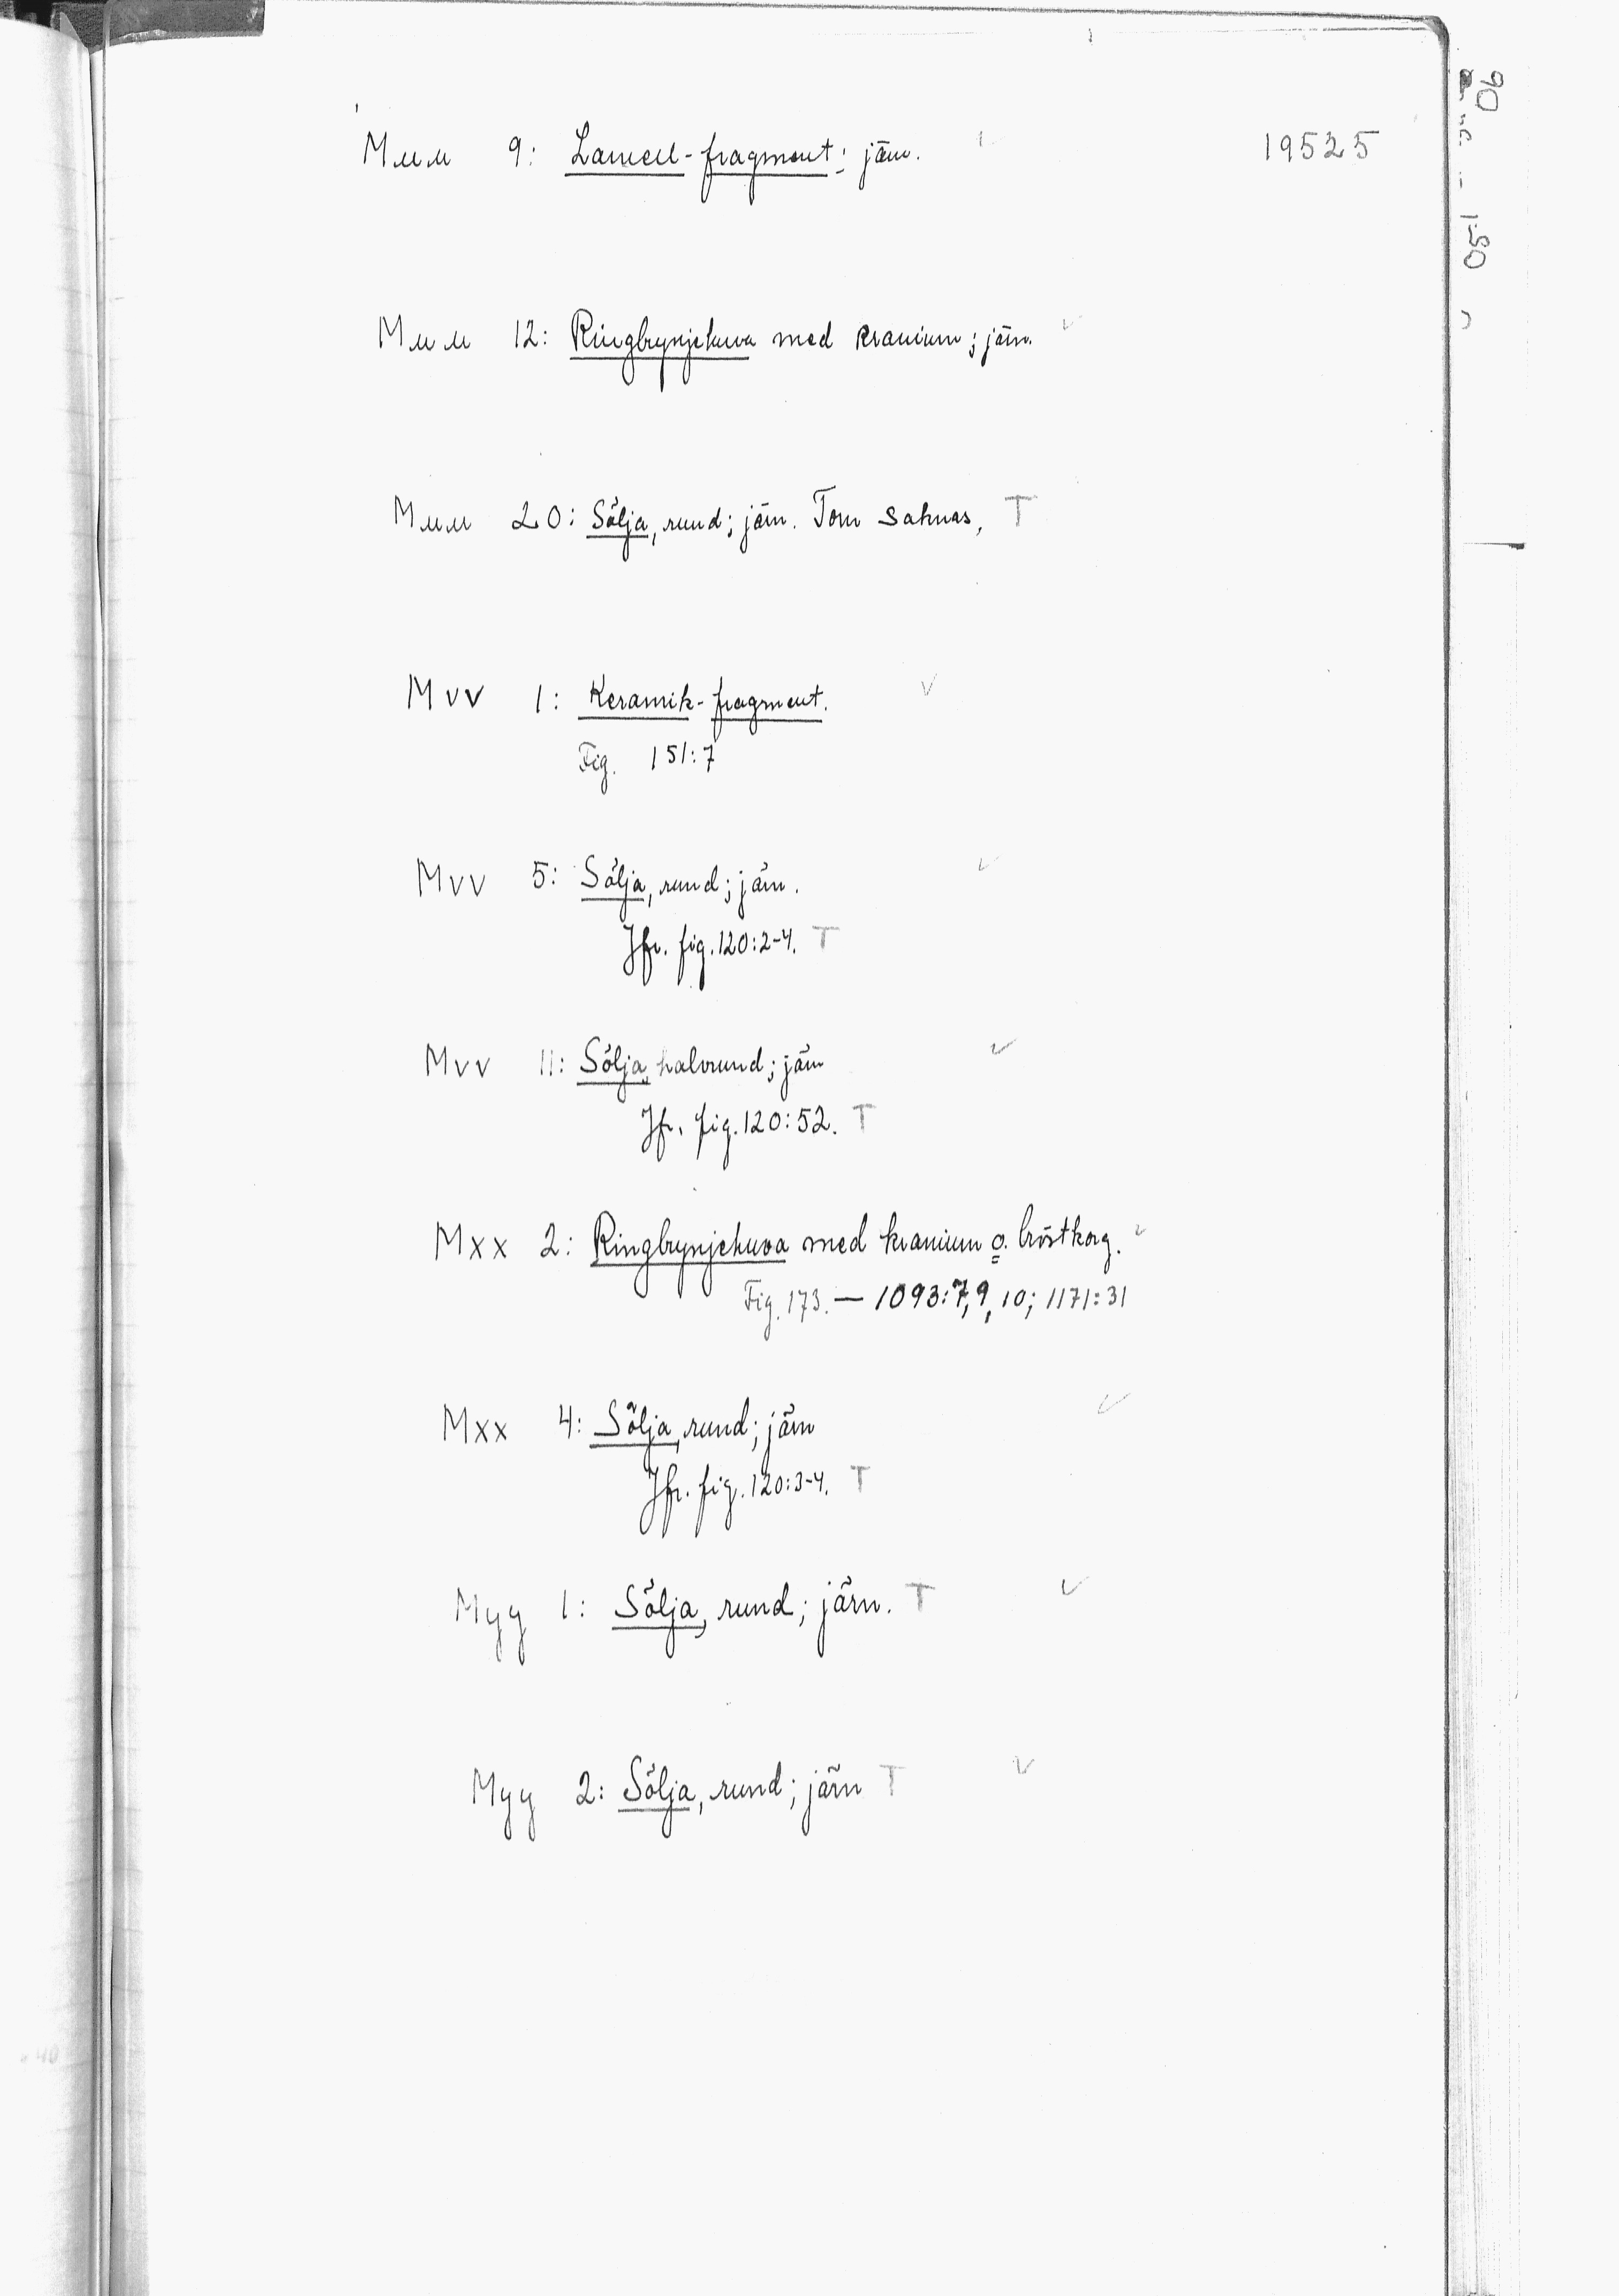 19525
Muu 9: Lamell-fragment; järn.
Muu 12: Ringbrynjehuva med kranium; järn. ✓
Muu 20: Sölja, rund; järn. Torn saknas, T
Mvv 1: Keramik-fragment. ✓
Fig. 151:7
Mvv 5: Sölja, rund; järn. ✓
Jfr. fig. 120:2-4. T
Mvv 11: Sölja, halvrund; järn ✓
Jfr. fig. 120:52. T
Mxx 2: Ringbrynjehuva med kranium o. bröstkorg. ✓
Fig. 173. — 1093:7, 9, 10; 1171:31
Mxx 4: Sölja, rund; järn ✓
Jfr. fig. 120:3-4. T
Myy 1: Sölja, rund; järn. T ✓
Myy 2: Sölja, rund; järn T ✓